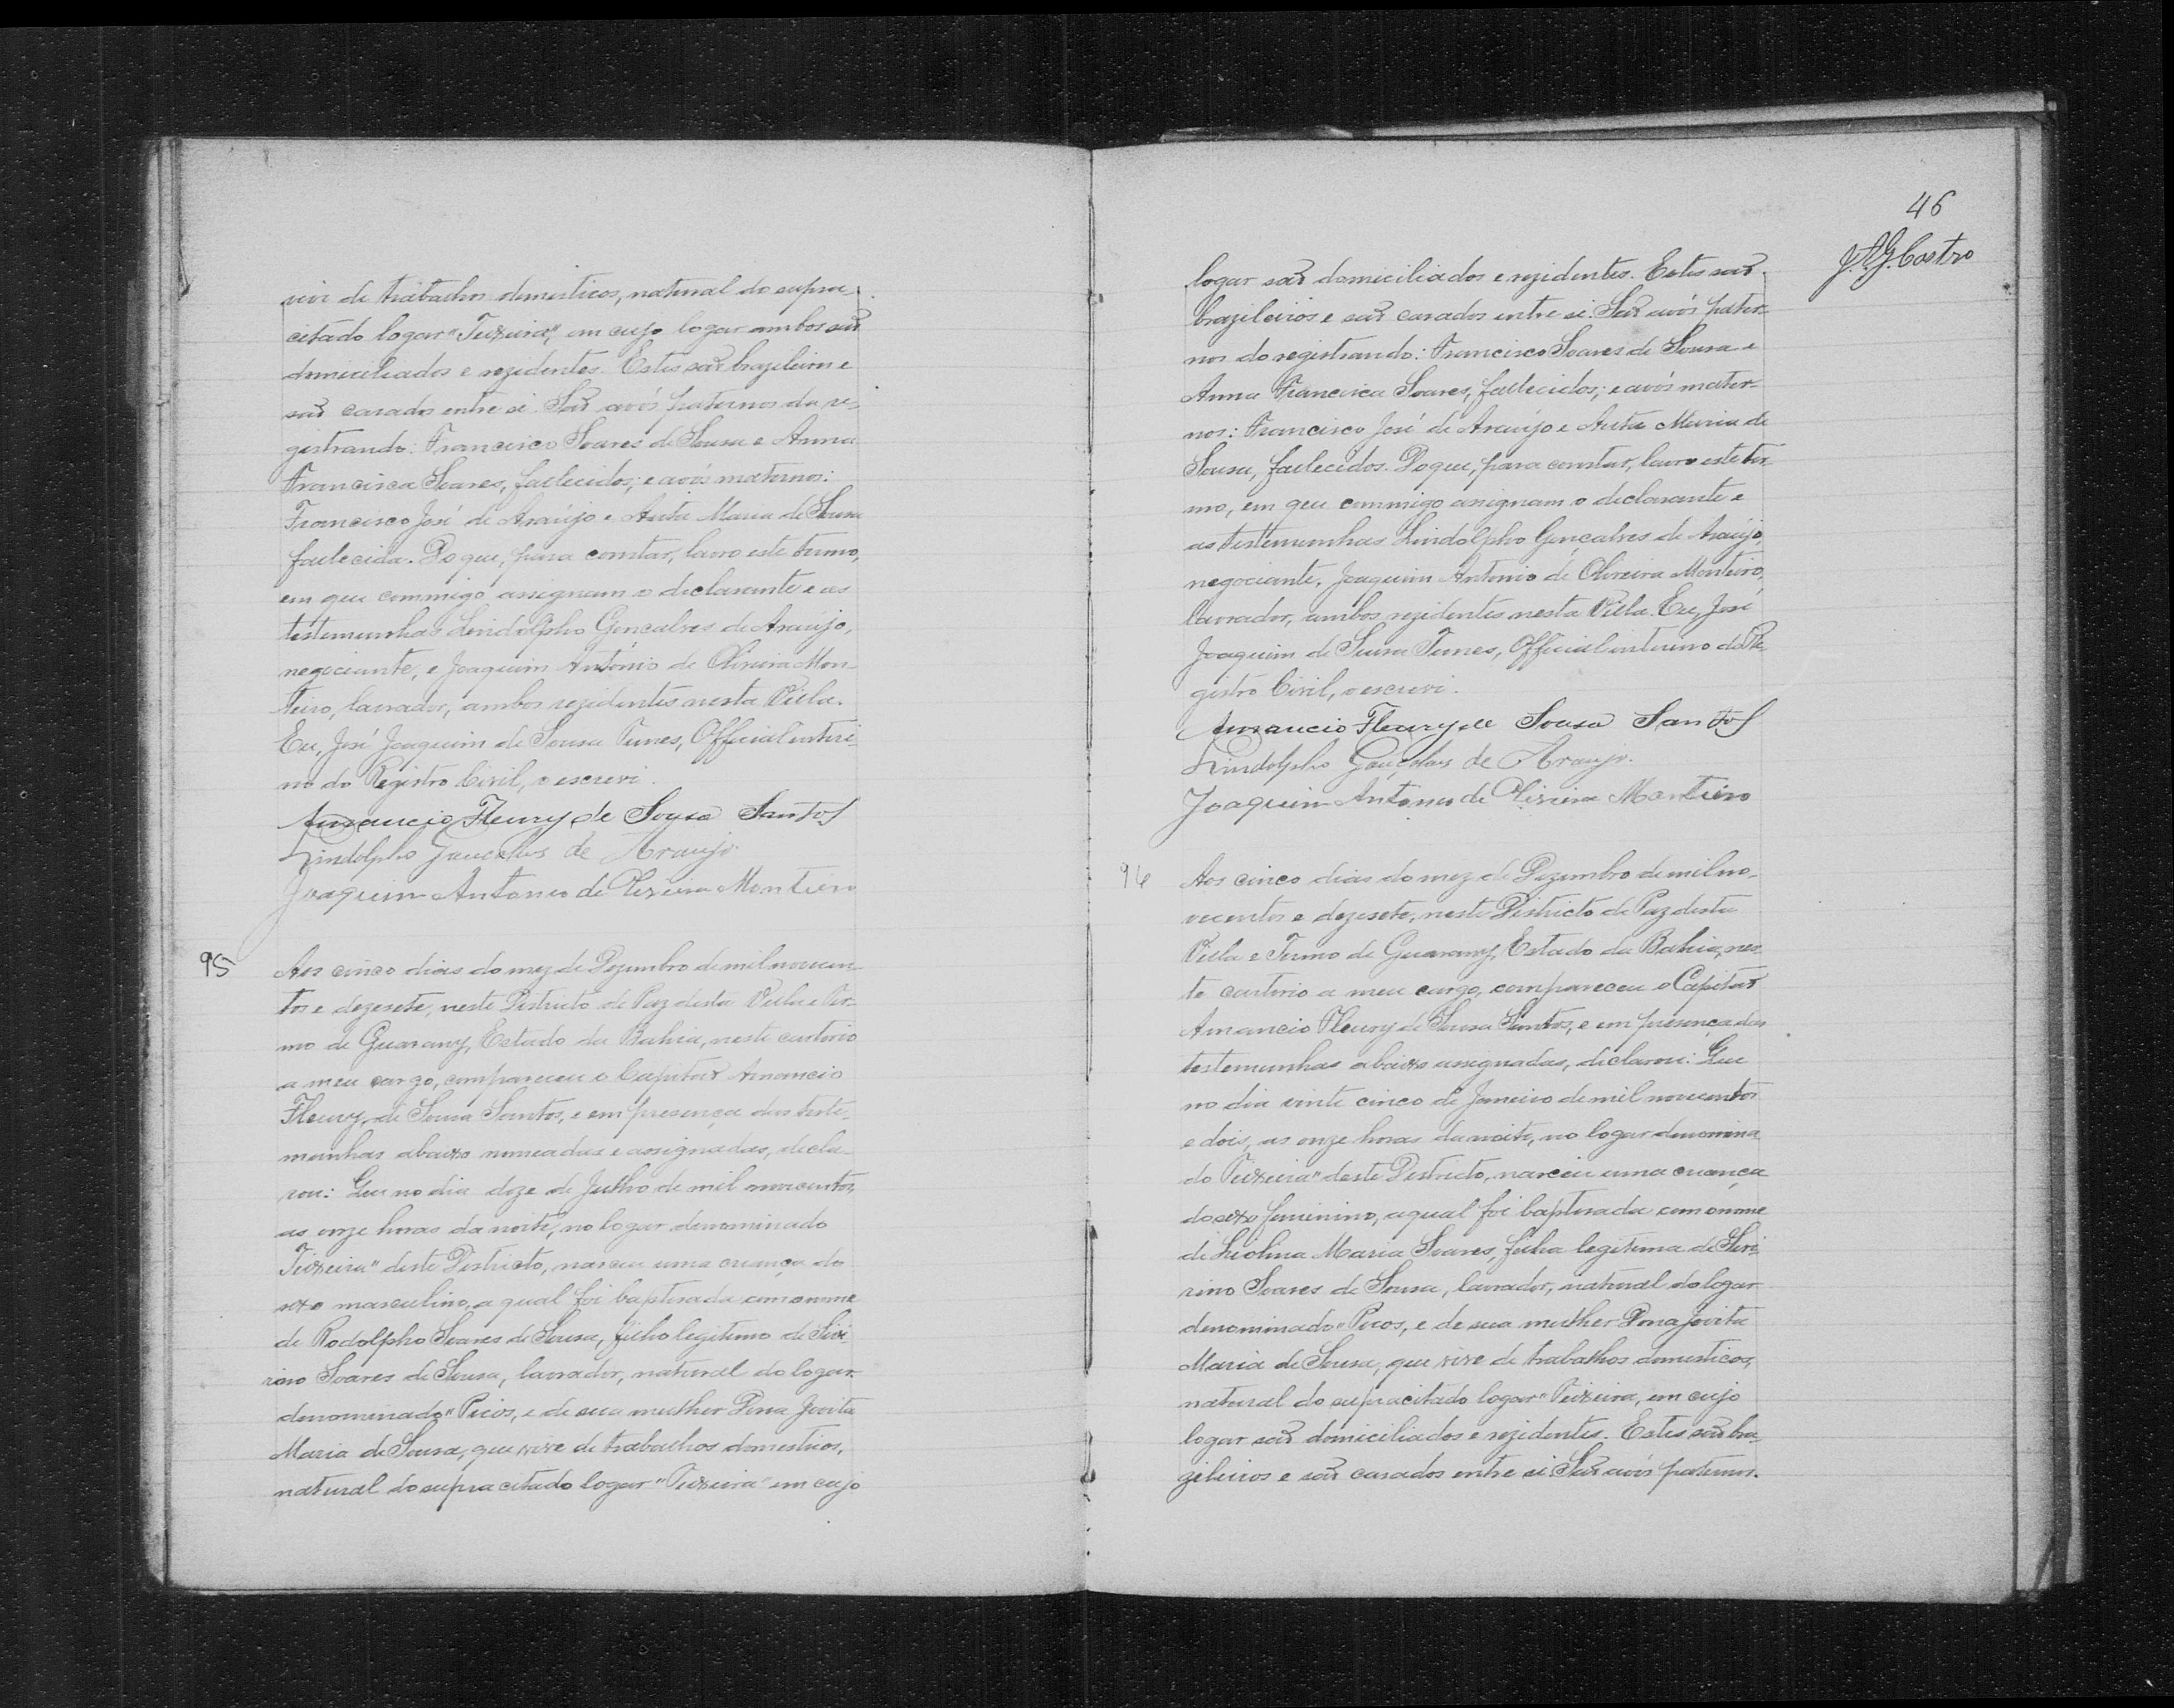 vive de trabalhos domesticos, natural do supra-
citado logar "Teixeira", em cujo logar ambos são
domiciliados e rezidentes. Estes são brazileiros e
são casados entre si. São avós paternos da re-
gistrando: Francisco Soares de Sousa e Anna
Francisca Soares, fallecidos; e avós maternos:
Francisco José de Araújo e Auta Maria de Sousa
fallecida. Do que, para constar, lavro este termo,
em que commigo assignam o declarante e as
testemunhas Lindolpho Gonçalves de Araújo,
negociante, e Joaquim Antonio de Oliveira Mon-
teiro, lavrador, ambos rezidentes nesta Villa.
Eu, José Joaquim de Sousa Tunes, Official interi-
no do Registro Civil, o escrevi.
Amancio Fleury de Sousa Santos
Lindolpho Gonçalves de Araujo.
Joaquim Antonio de Oliveira Monteiro
95
Aos cinco dias do mez de Dezembro de mil novecen-
tos e dezesete, neste Districto de Paz desta Villa e Ter-
mo de Guarany, Estado da Bahia, neste cartorio
a meu cargo, compareceu o Capitão Amancio
Fleury de Sousa Santos, e em presença das teste-
munhas abaixo nomeadas e assignadas, decla-
rou: Que no dia doze de Julho de mil novecentos,
as onze horas da noite, no logar denominado
Teixeira" deste Districto, nasceu uma criança do
sexo masculino, a qual foi baptisada com o nome
de Rodolpho Soares de Sousa, filho legitimo de Sive
rino Soares de Sousa, lavrador, natural do logar
denominado "Picos, e de sua mulher Dona Jovita
Maria de Sousa, que vive de trabalhos domesticos,
natural do supracitado logar "Teixeira" em cujo
46
J.A.G. Castro
logar são domiciliados e rezidentes. Estes são
brazileiros e são casados entre si. São avós pater-
nos do registrando: Francisco Soares de Sousa e
Anna Francisca Soares, fallecidos; e avós mater-
nos: Francisco José de Araújo e Auta Maria de
Sousa, fallecidos. Do que, para constar, lavro este ter-
mo, em que commigo assignam o declarante e
as testemunhas Lindolpho Gonçalves de Araújo,
negociante, Joaquim Antonio de Oliveira Monteiro,
lavrador, ambos rezidentes nesta Villa. Eu, José
Joaquim de Sousa Tunes, Official interino do Re-
gistro Civil, o escrevi.
Amancio Fleury de Sousa Santos
Lindolpho Gonçalves de Araujo.
Joaquim Antonio de Oliveira Monteiro
96
Aos cinco dias do mez de Dezembro de mil no-
vecentos e dezesete, neste Districto de Paz desta
Villa e Termo de Guarany, Estado da Bahia, nes-
te cartorio a meu cargo, compareceu o Capitão
Amancio Fleury de Sousa Santos, e em presença das
testemunhas abaixo assignadas, declarou: Que
no dia vinte cinco de Janeiro de mil novecentos
e dois, as onze horas da noite, no logar denomina
do Teixeira" deste Districto, nasceu uma criança
do sexo feminino, a qual foi baptisada com o nome
de Liolina Maria Soares, filha legitima de Seve
rino Soares de Sousa, lavrador, natural do logar
denominado "Picos, e de sua mulher Dona Jovita
Maria de Sousa, que vive de trabalhos domesticos,
natural do supracitado logar "Teixeira, em cujo
logar são domiciliados e rezidentes. Estes são bra-
zileiros e são casados entre si. São avós paternos.